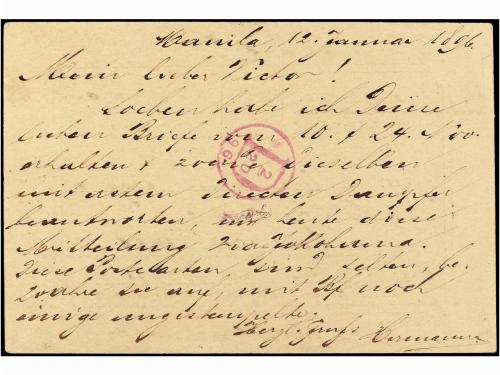 Manila, 12. Januar 1896.
Mein lieber Victor!
Soeben habe ich Deine
lieben Briefe vom 10. & 24. Nov.
erhalten & werde dieselben
mit erstem directen Dampfer
beantworten, nur heute diese
Mitteilung
Diese Postkarten sind selten, be-
wahre sie auf, mit Bf noch
einige ungestempelte.
Herzl. Gruss Hermann